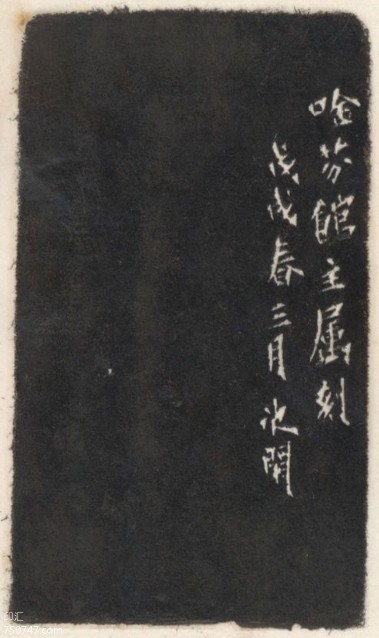 唫芬館主屬刻
戊戌春三月池開
印汇
759747.com